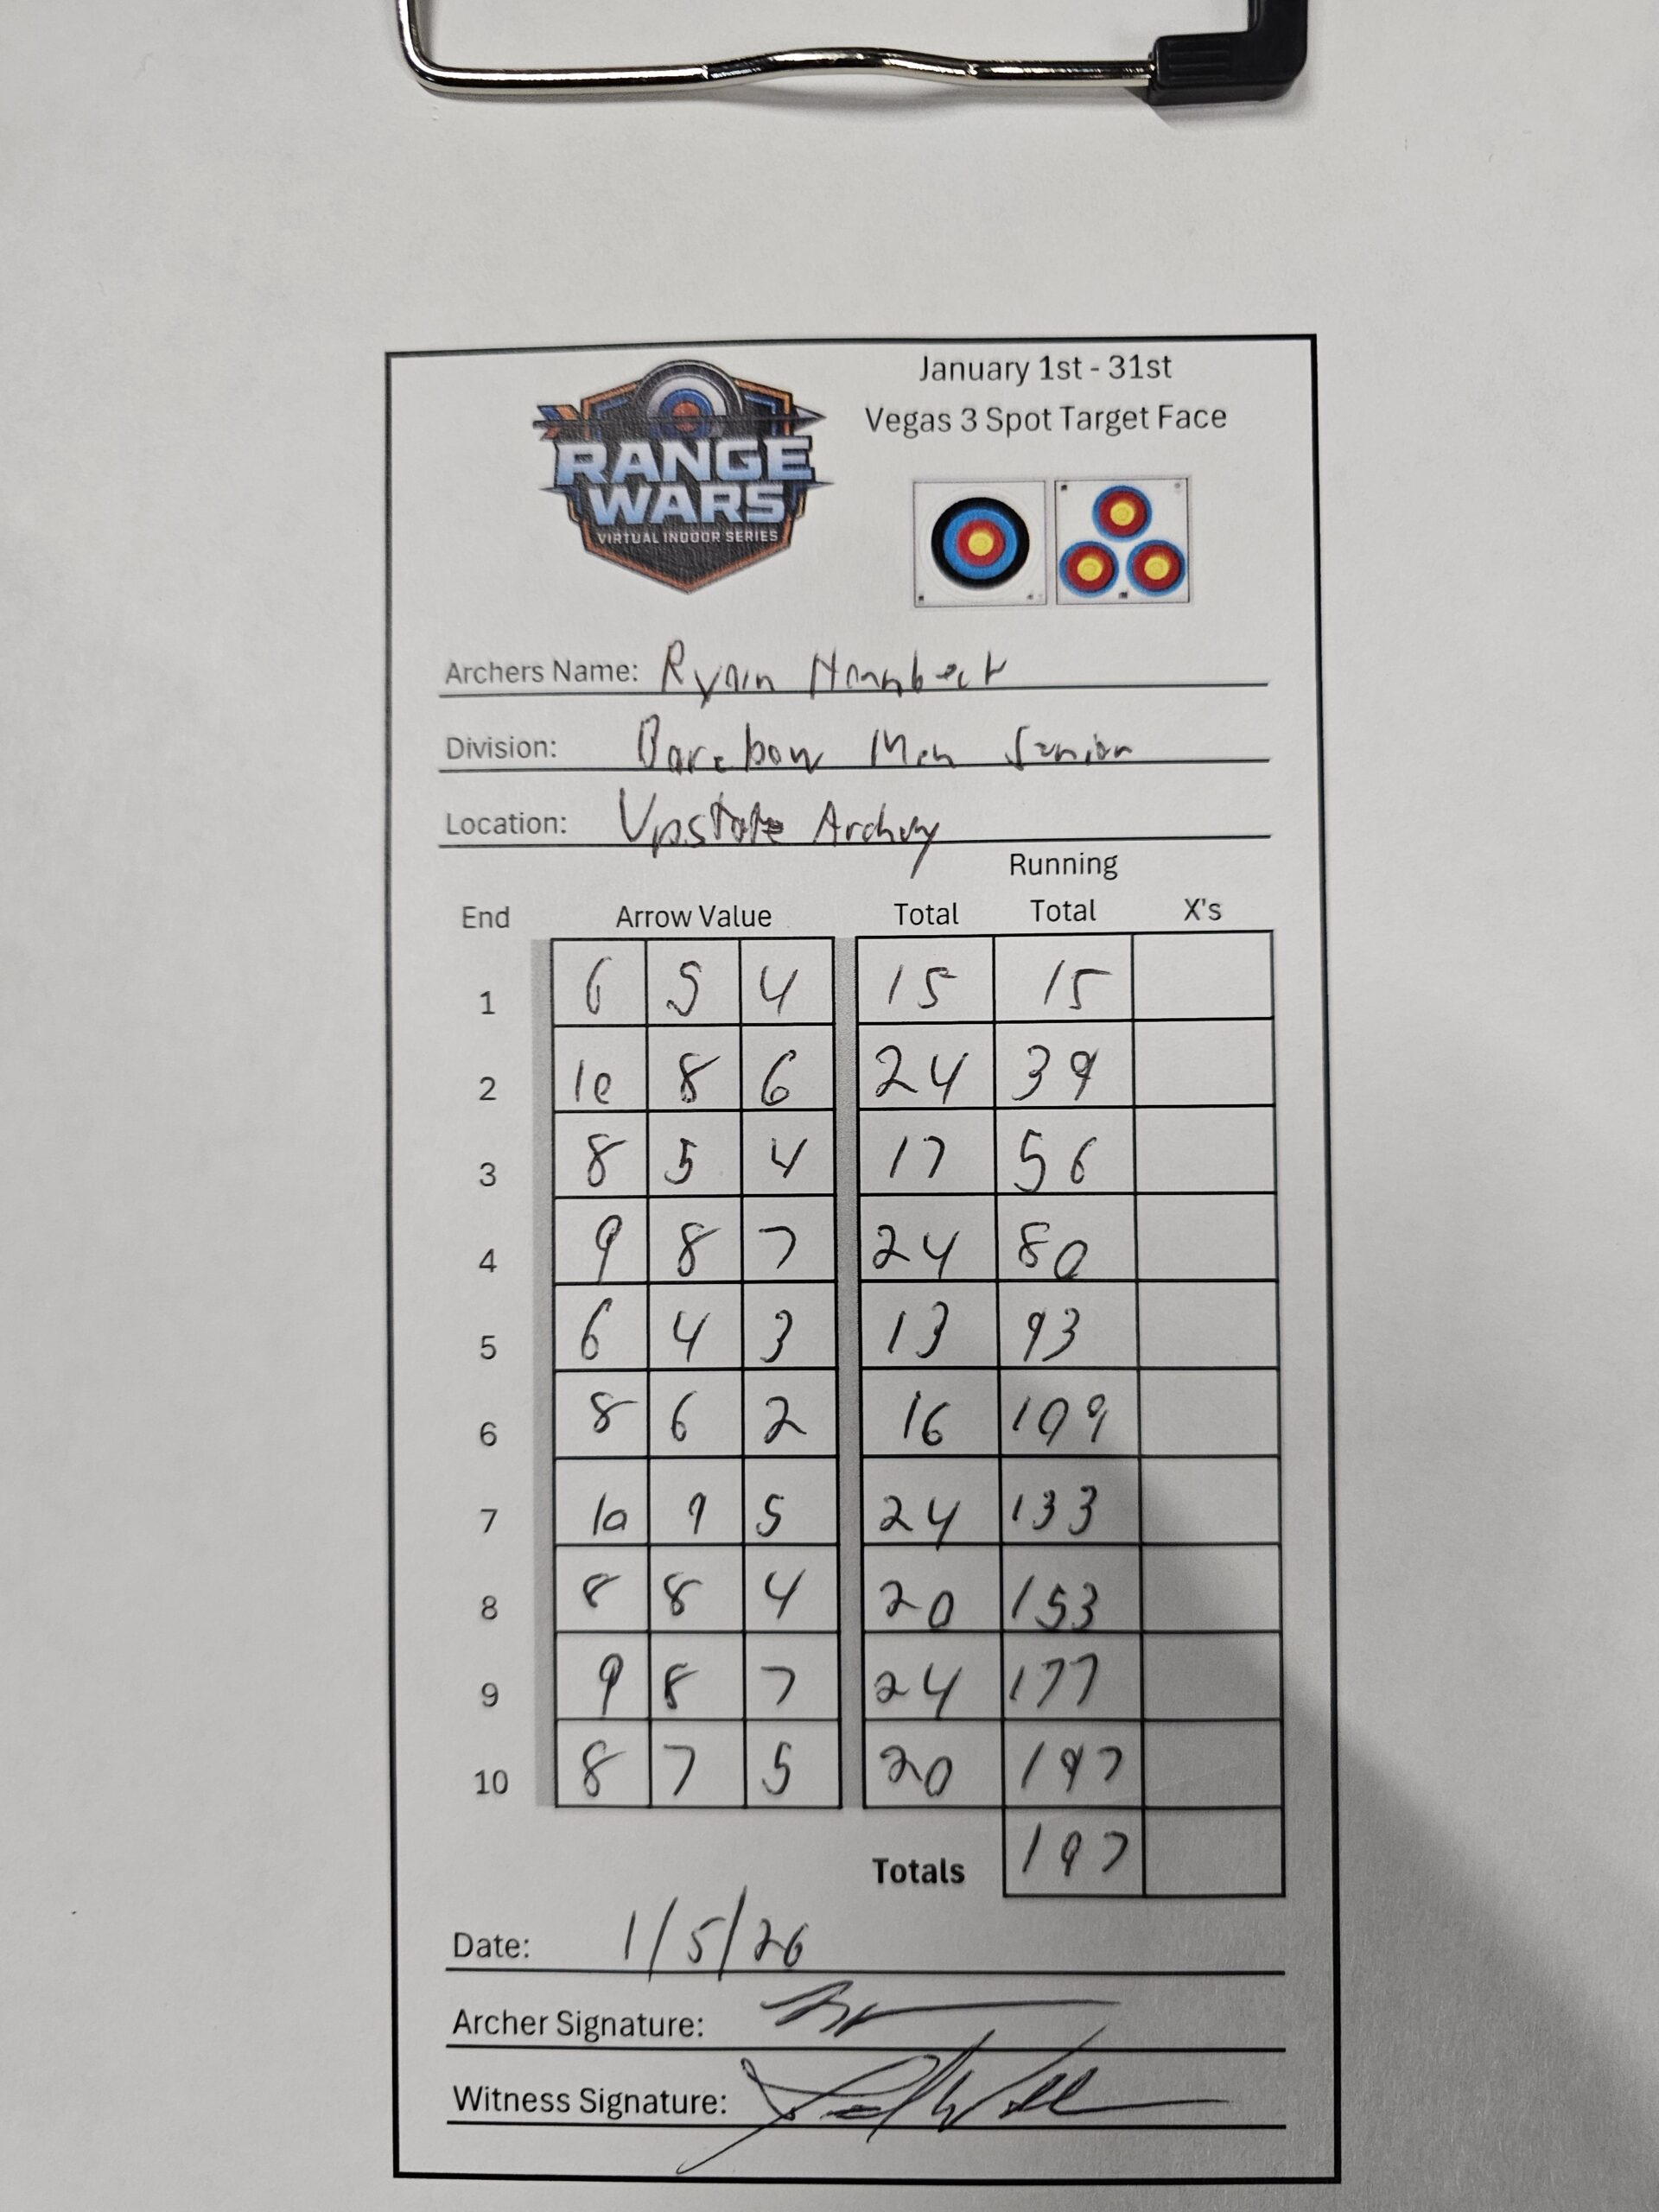 January 1st - 31st
Vegas 3 Spot Target Face
RANGE
WARS
VIRTUAL INDOOR SERIES
Archers Name: Ryan
Division: Barebow Men Senior
Location: Upstate Archery
Running
End Arrow Value Total Total X's
1 6 5 4 15 15
2 10 8 6 24 39
3 8 5 4 17 56
4 9 8 7 24 80
5 6 4 3 13 93
6 8 6 2 16 109
7 10 9 5 24 133
8 8 8 4 20 153
9 9 8 7 24 177
10 8 7 5 20 197
Totals 197
Date: 1/5/26
Archer Signature:
Witness Signature: